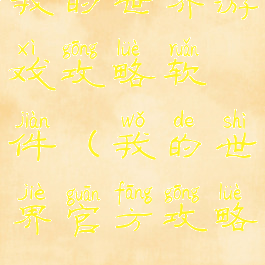 我的世界游
xì gōng lüè ruǎn
戏攻略软
jiàn wǒ de shì
件（我的世
jiè guān fāng gōng lüè
界官方攻略